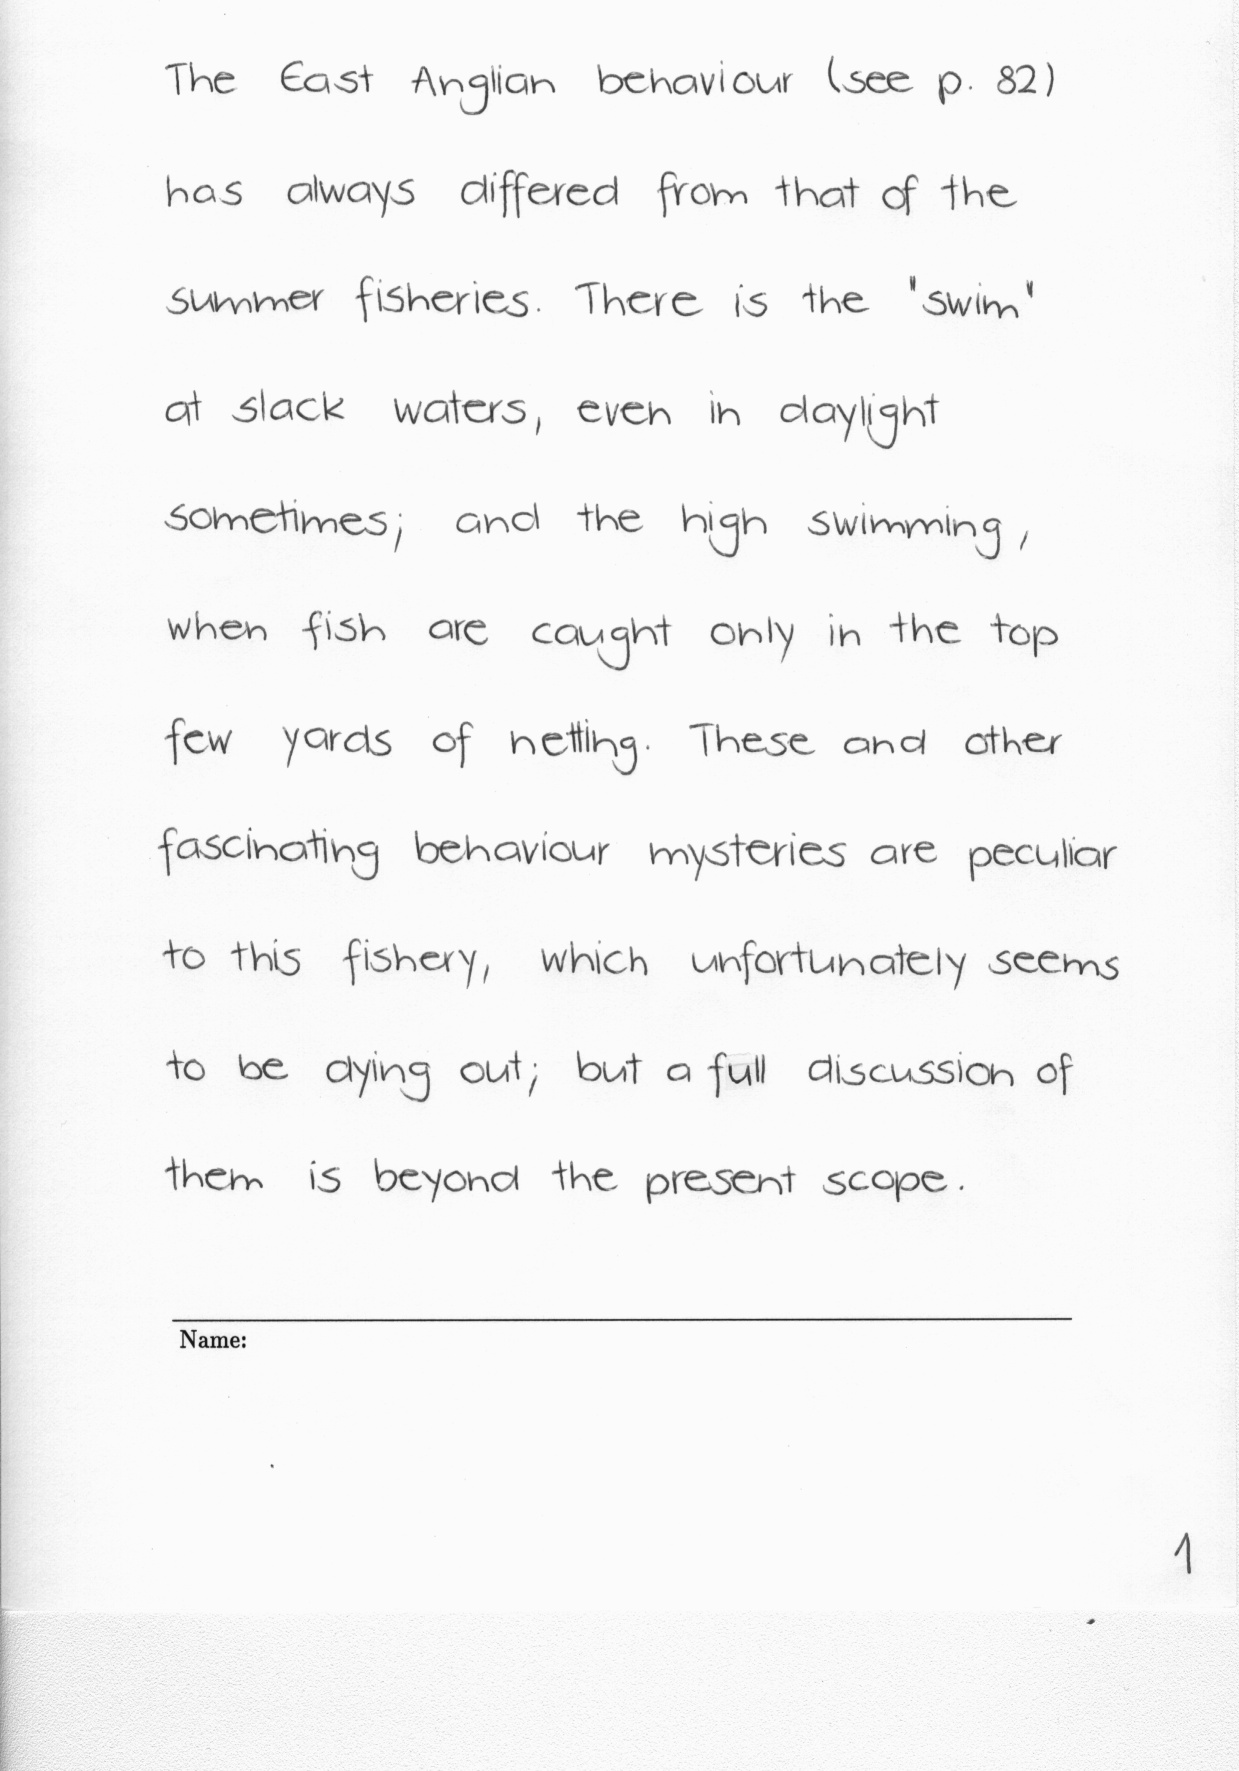 The East Anglian behaviour (see p. 82)
has always differed from that of the
summer fisheries. There is the "swim"
at slack waters, even in daylight
sometimes; and the high swimming,
when fish are caught only in the top
few yards of netting. These and other
fascinating behaviour mysteries are peculiar
to this fishery, which unfortunately seems
to be dying out; but a full discussion of
them is beyond the present scope.
Name:
1